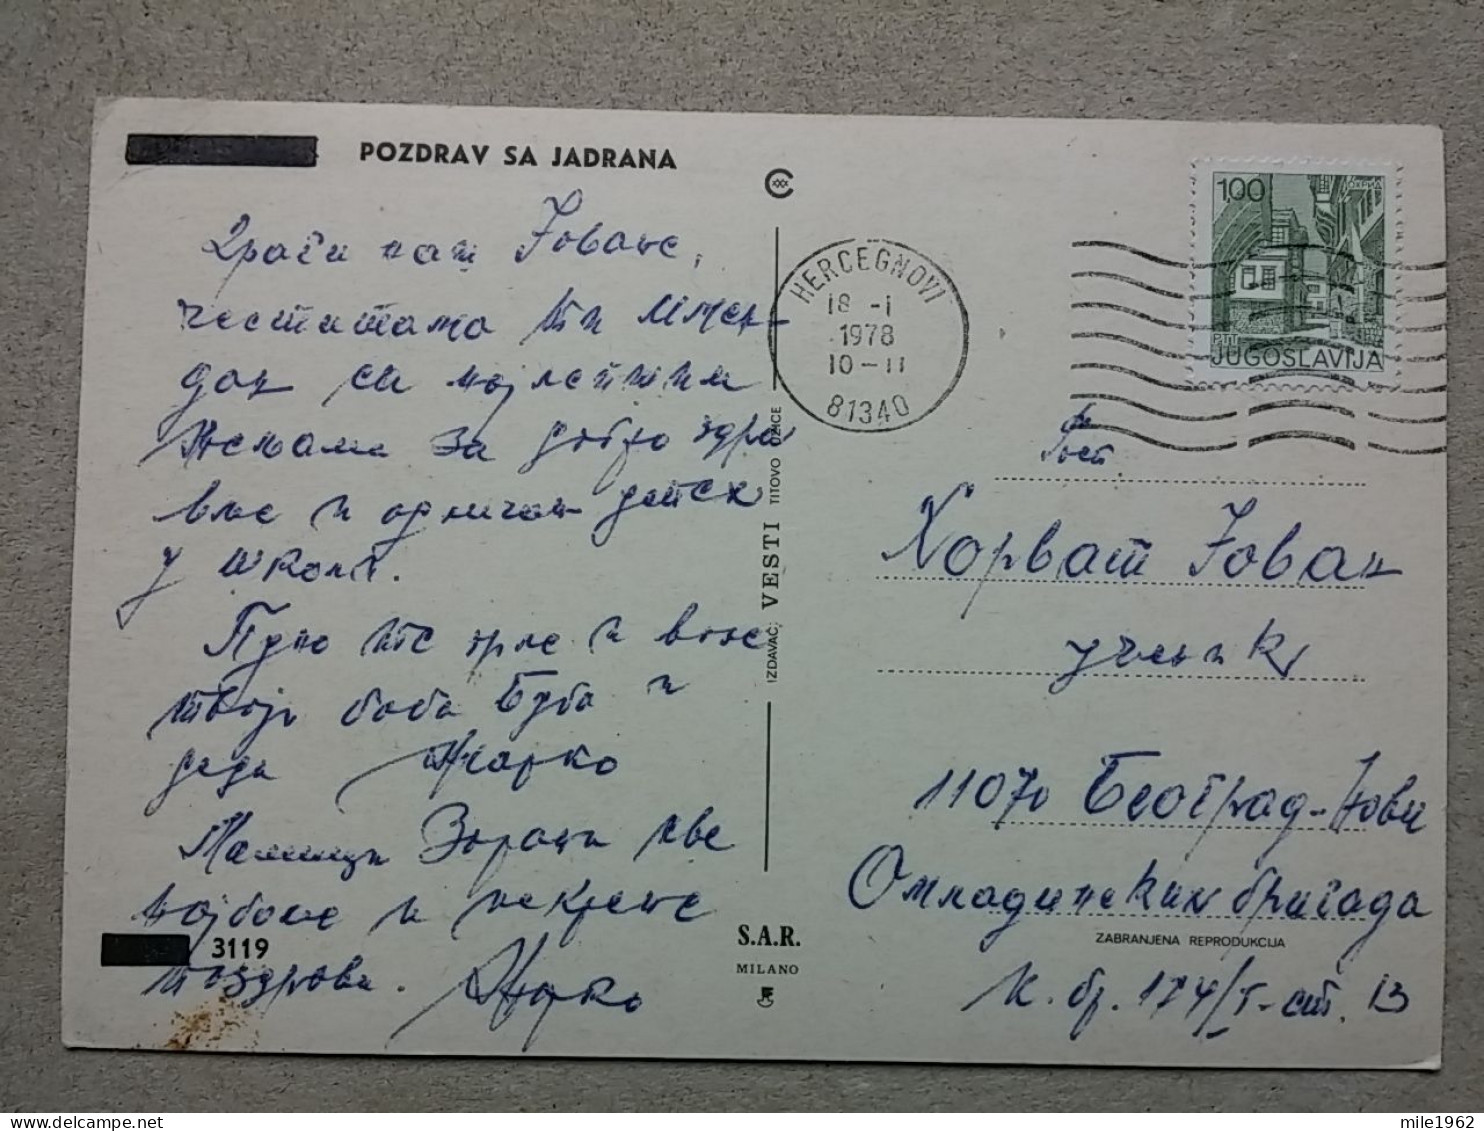 POZDRAV SA JADRANA
Драги наш Јоване,
честитамо ти имен-
дан са најлепшим
жељама за добро здра
вље и одличан успех
у школи.
Пуно те грле и воле
твоји баба Буба и
деда Жарко
Мамици Зорани све
најбоље и искрене
поздрове. Жарко
3119
IZDAVAČ: VESTI TITOVO UŽICE
S.A.R.
MILANO
HERCEGNOVI
18-1
1978
10-11
81340
100
ОХРИД
PTT
JUGOSLAVIJA
Хорват Јован
ученик
11070 Београд-Нови
Омладинских бригада
к. бр. 174/I-ст. 13
ZABRANJENA REPRODUKCIJA
mile1962